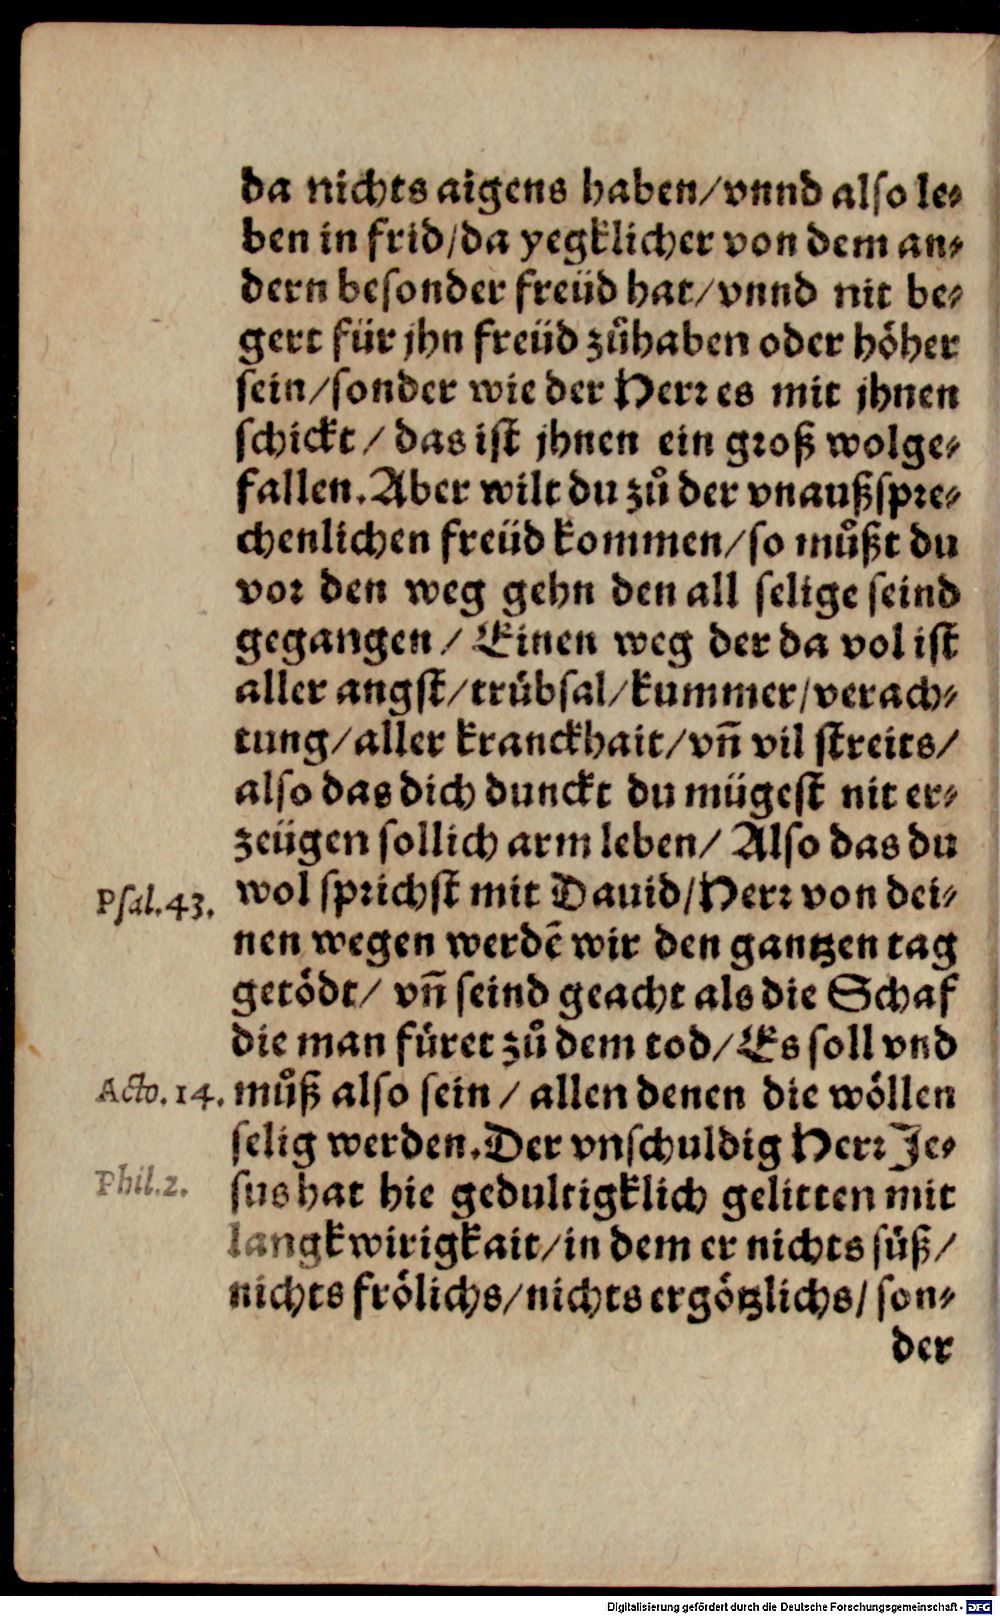 da nichts aigens haben/vnnd also le⸗
ben in frid/da yegklicher von dem an⸗
dern besonder freüd hat/vnnd nit be⸗
gert für jhn freüd zůhaben oder höher
sein/sonder wie der Herr es mit jhnen
schickt/das ist jhnen ein groß wolge⸗
fallen.Aber wilt du zů der vnaußspre⸗
chenlichen freüd kommen/so můßt du
vor den weg gehn den all selige seind
gegangen/Einen weg der da vol ist
aller angst/trübsal/kummer/verach⸗
tung/aller kranckhait/vñ vil streits/
also das dich dunckt du mügest nit er⸗
zeügen sollich arm leben/Also das du
Psal.43. wol sprichst mit Dauid/Herr von dei⸗
nen wegen werdẽ wir den gantzen tag
getödt/vñ seind geacht als die Schaf
die man füret zů dem tod/Es soll vnd
Acto.14. můß also sein/allen denen die wöllen
selig werden.Der vnschuldig Herr Je⸗
Phil.2. sus hat hie gedultigklich gelitten mit
langkwirigkait/in dem er nichts süß/
nichts frölichs/nichts ergötzlichs/son⸗
der
Digitalisierung gefördert durch die Deutsche Forschungsgemeinschaft - DFG